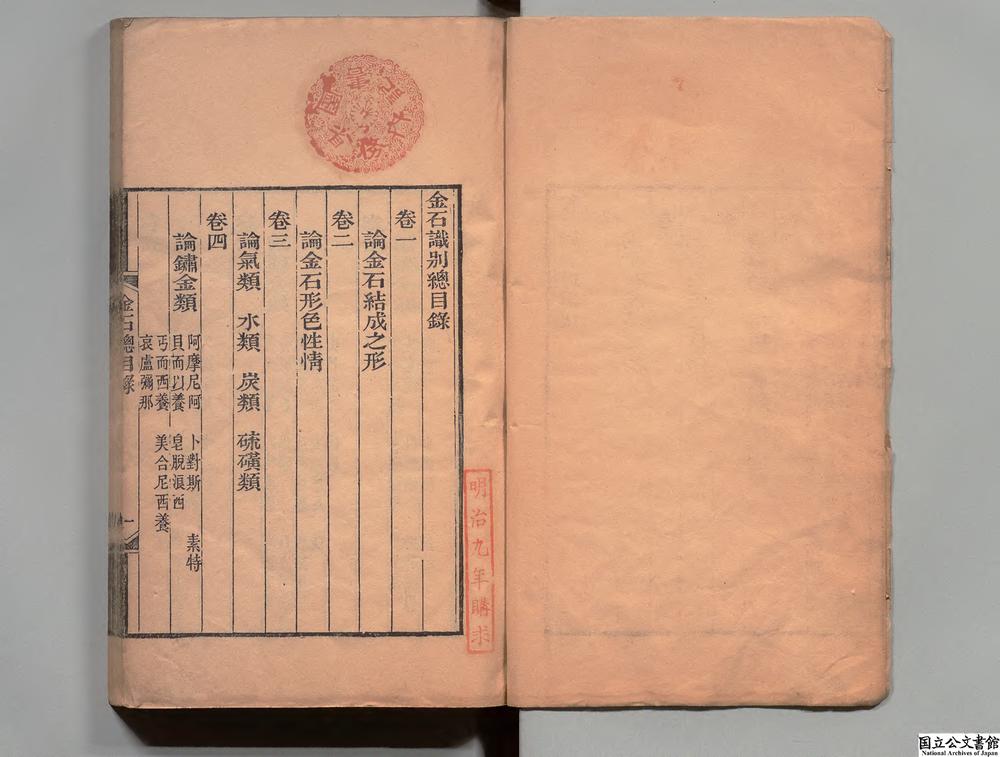 金石識別總目錄
卷一
論金石結成之形
卷二
論金石形色性情
卷三
論氣類 水類 炭類 硫磺類
卷四
論鏽金類
阿摩尼阿 卜對斯 素特
貝而以養 皂脫浪西
丐而西養 美合尼西養
哀盧彌那
金石總目錄
一
明治九年購求
国立公文書館
National Archives of Japan